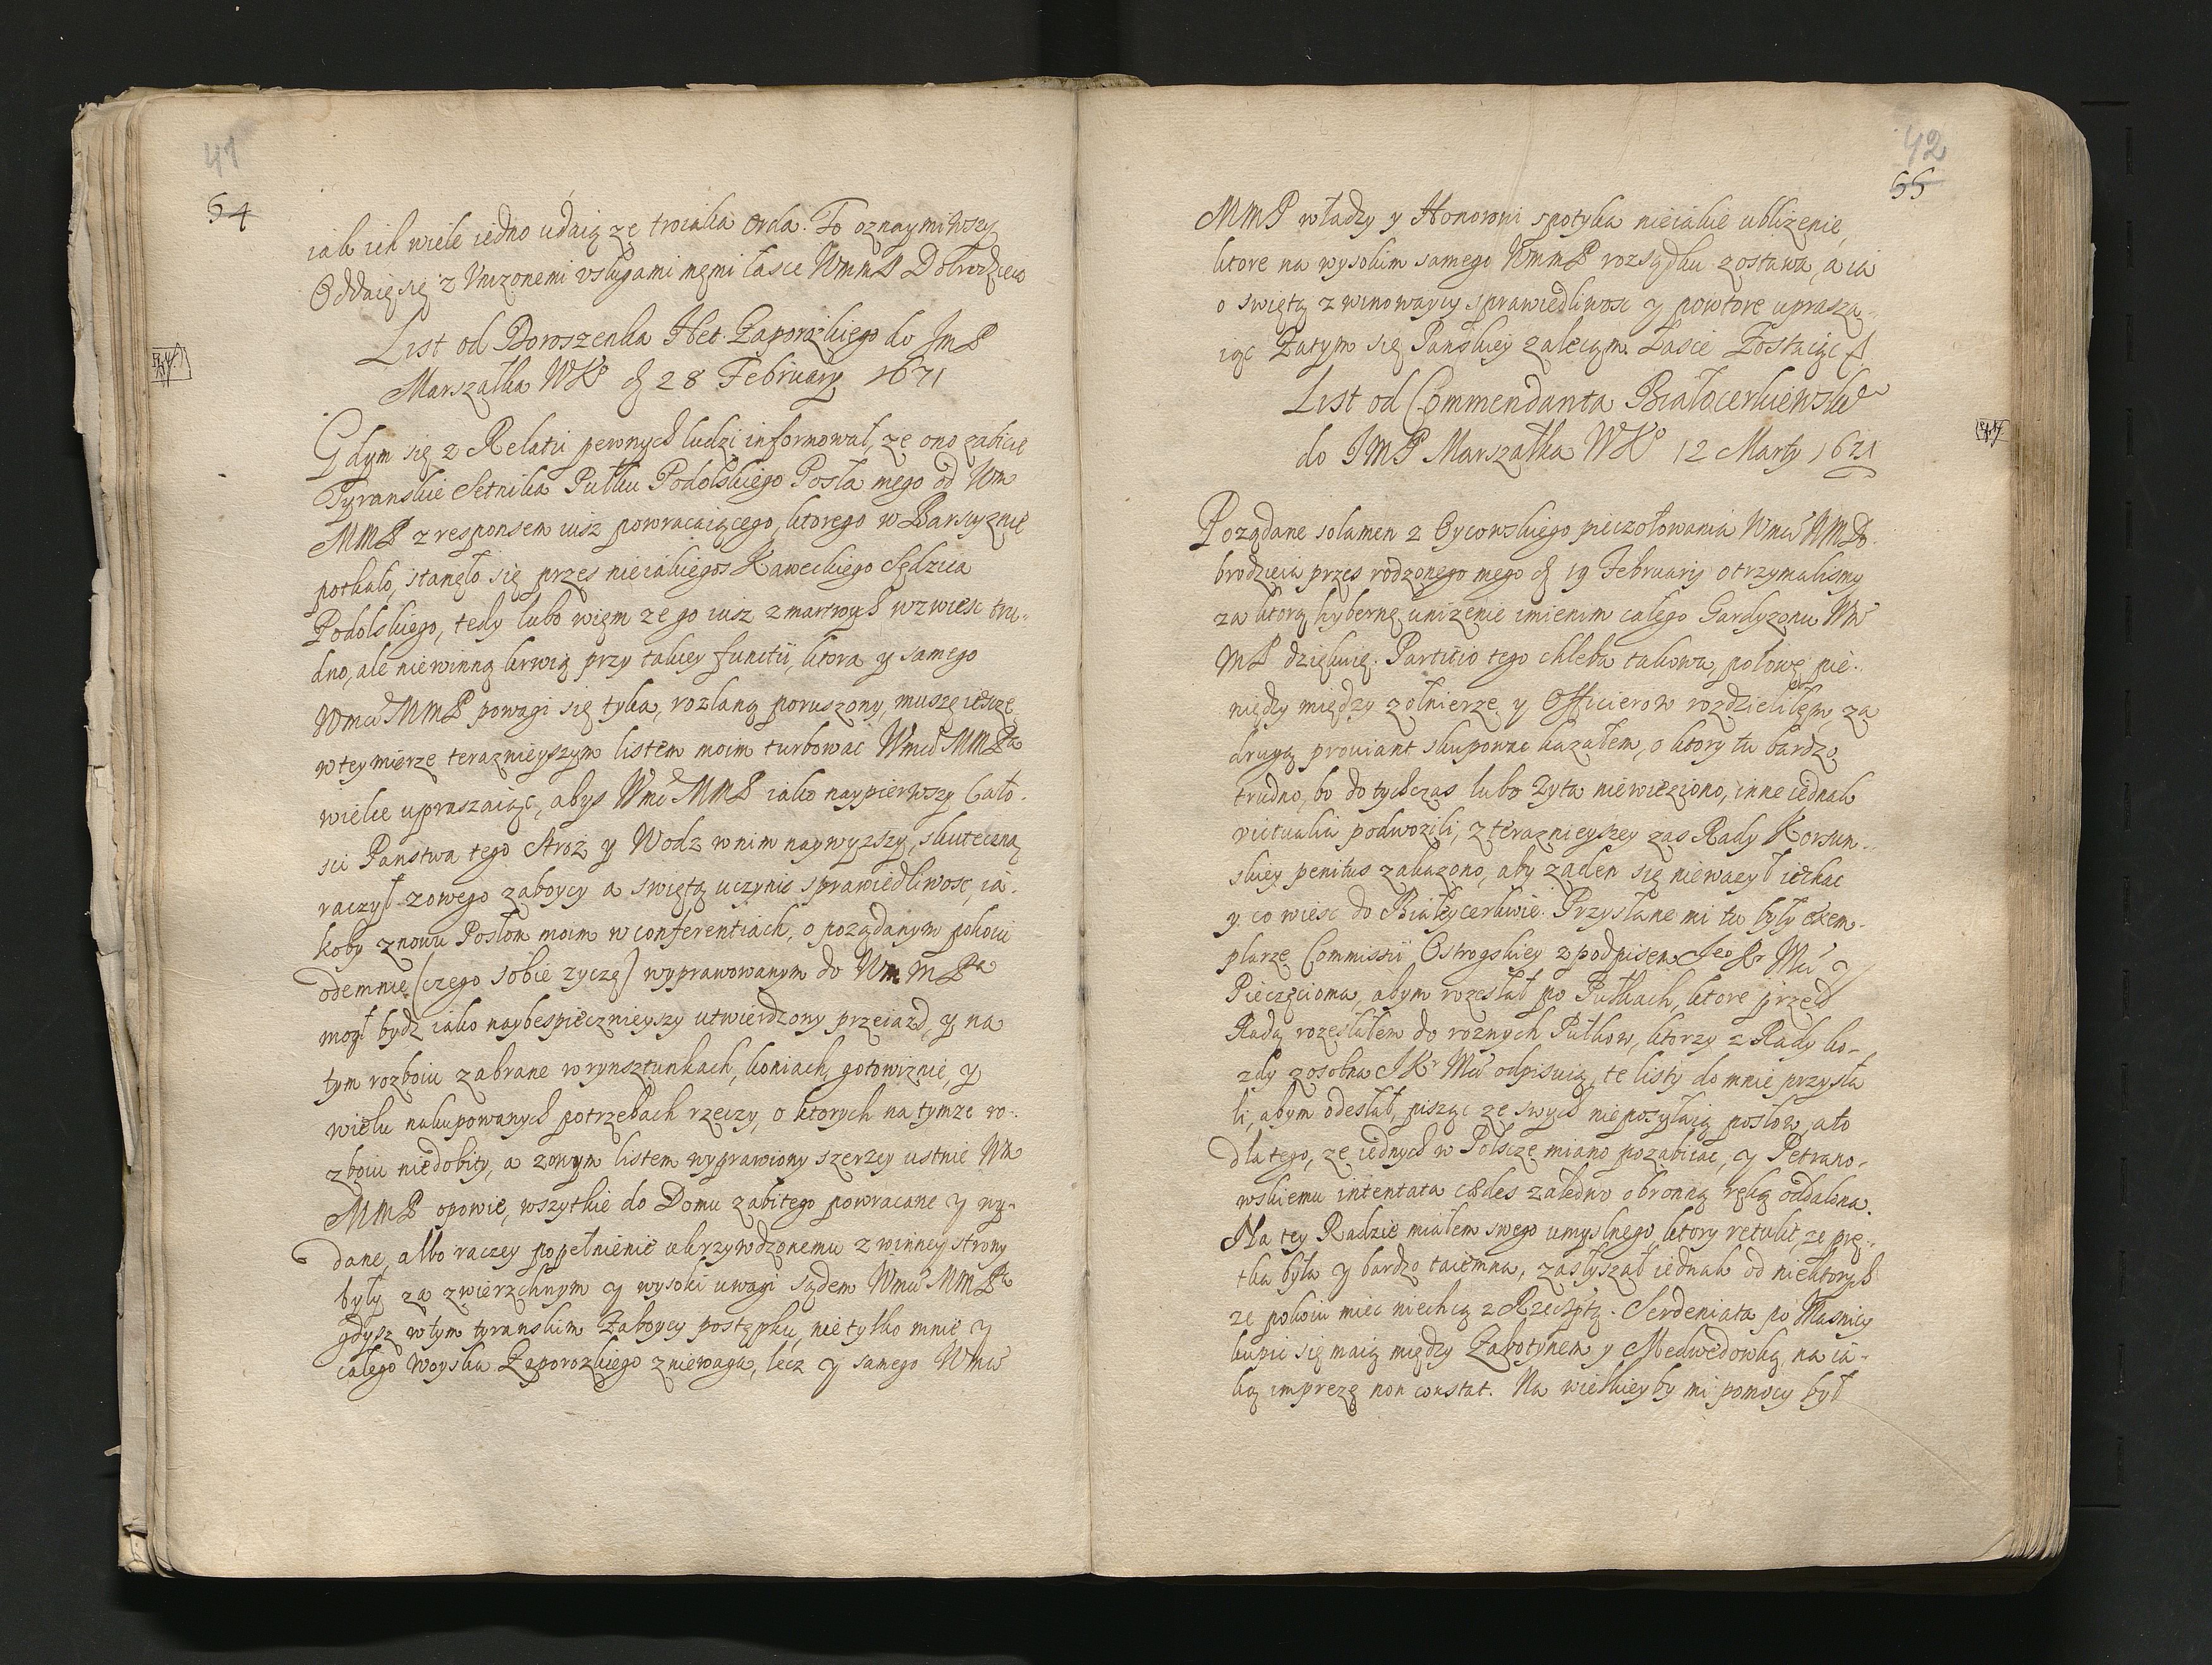 41
54
iak ich wiele iedno udaią ze troiaka Orda. To oznaymiwszy
Oddaię się z Unizonemi usługami męmi łasce WmmP Dobrodzieia
List od Doroszenka Het. Zaporozkiego do JmP
Marszałka WKo d 28 February 1671
Gdym się z Relatii pewnych ludzi informował, ze ono zabicie
Tyranskie Setnika Pułku Podolskiego Posła mego od Wm
MMP z responsem iusz powracaiącego, ktorego w Barszczyznie
potkało, stanęło się przes nieiakiegos Kaweckiego Sędzica
Podolskiego, tedy lubo więm ze go iusz zmartwych wzwiesc tru-
dno, ale niewinną krwią przy takiey functii, ktora y samego
Wmci MMP powagi się tyka, rozlaną poruszony, muszę ieszcze
w tey mierze teraznieyszym listem moim turbowac Wmci MMPa
wielce upraszaiąc, abys Wmci MMP iako naypierwszy Cało-
sci Panstwa tego Stroz y Wodz w nim naywyzszy, skuteczną
raczył zowego zaboycy a swiętą uczynic sprawiedliwosc, ia-
koby znowu Posłom moim w conferentiach, o poządanym pokoiu
odemnie (czego sobie zyczę) wyprawowanym do Wm MPa
mogł bydz iako naybespiecznieyszy utwierdzony przeiazd, y na
tym rozboiu zabrane w rynsztunkach, koniach, gotowiznie, y
wielu nakupowanych potrzebach rzeczy, o ktorych na tymze ro-
zboiu niedobity, a zowym listem wyprawiony szerzey ustnie Wm
MMP opowie, wszytkie do Domu zabitego powracane y wy-
dane, albo raczey popełnienie ukrzywdzonemu z winney strony
były za zwierzchnym y wysoki uwagi sądem Wmci MMPa
gdysz w tym tyranskim Zaboycy postępku, nie tylko mnie y
całego Woyska Zaporozkiego zniewaga, lecz y samego Wmci
42
55
MMP władzy y Honorowi spotyka nieiakie ublizenie,
ktore na wysokim samego WmmP rozsądku zostawa, a ia
o swiętą z winowaycy sprawiedliwosc y powtore uprasza-
iąc Zatym się Panskiey zalecam Łasce Zostaiąc
List od Commendanta Białocerkiewskie
do JMP Marszałka WKo 12 Marty 1671
Poządane solamen z Oycowskiego pieczołowania Wmci MM Do-
brodzieia przes rodzonego mego d 19 February otrzymalismy
za ktorą hybernę unizenie imieniem całego Gardyzonu Wm
MP dziękuię. Partitio tego chleba takowa, połowę pie-
niędzy między zołnierze y Officierow rozdzieliłem, za
drugą prowiant skupowac kazałem, o ktory tu bardzo
trudno, bo do tychczas lubo Zyta niewieziono, inne iednak
victualia podwozili, z teraznieyszey zas Rady Korsun-
skiey penitus zakazono, aby zaden się niewazył iechac
y co wiesc do Białeycerkwie. Przysłane mi tu były exem-
plarze Commissii Ostrogskiey z podpisem Jeo Kr Mci y
Pieczęcioma, abym rozesłał po Pułkach, ktore przed
Radą rozesłałem do roznych Pułkow, ktorzy z Rady ko-
zdy zosobna JKr Mci odpisuią, te listy do mnie przysła
li, abym odesłał, pisząc ze swych nieposyłaią posłow, a to
dla tego, ze iednych w Polscze miano pozabiiac, y Petrano-
wskiemu intentata cædes zaledwo obronną ręką oddalona.
Na tey Radzie miałem swego umyslnego, ktory retulit, ze prę-
tka była y bardzo taiemna, zasłyszał iednak od niektorych
ze pokoiu miec niechcą z Rzecząptą. Serdeniata po Masnicy
kupic się maią między Zabotynem y Medwedowką, na ia-
ką imprezę non constat. Na wielkiey by mi pomocy był